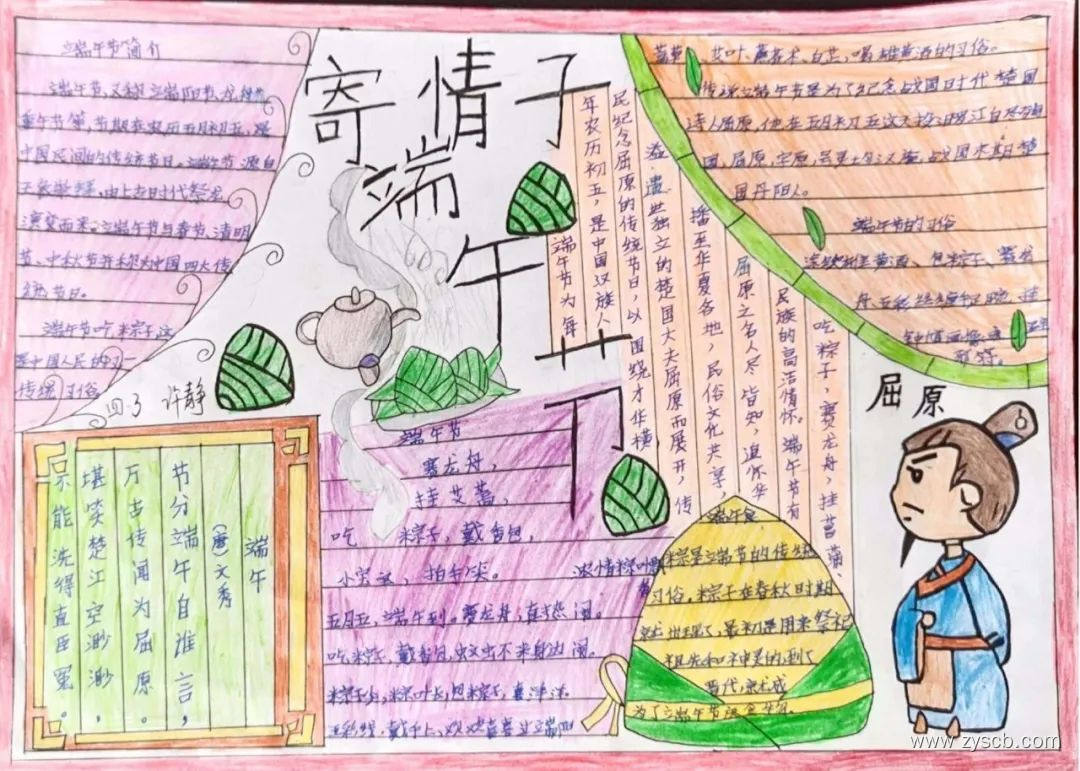 寄情子
端午节
端午节简介
端午节,又称端阳节,龙舟节
重午节等,节期在农历五月初五,是
中国民间的传统节日。端午节源自
天象崇拜,由上古时代祭龙
演变而来。端午节与春节、清明
节、中秋节并称为中国四大传
统节日。
端午节吃粽子,这
是中国人民的又一
传统习俗
四.3 许静
端午
(唐)文秀
节分端午自谁言,
万古传闻为屈原。
堪笑楚江空渺渺,
不能洗得直臣冤。
端午节
赛龙舟,
挂艾蒿,
吃粽子,戴香包,
五月五,端午到。赛龙舟,真热闹。
吃粽子,戴香包,蚊虫不来身边闹。
粽子香,包粽子,喜洋洋。
端午节为每
年农历初五,是中国汉族人
民纪念屈原的传统节日,以围绕才华横
溢、遗世独立的楚国大夫屈原而展开,传
播至华夏各地,民俗文化共享,
屈原之名人尽皆知,追怀华
民族的高洁情怀。端午节有
吃粽子,赛龙舟,挂菖蒲、
艾叶、薰苍术、白芷,喝雄黄酒的习俗。
传说端午节是为了纪念战国时代楚国
诗人屈原,他在五月初五这天投汨罗江自尽殉
国丹阳人。
端午节的习俗
浓情粽叶
粽是端午节的传统
习俗,粽子在春秋时期
就出现了,最初是用来祭祀
祖先和神灵的,到了
晋代,就成
为了端午节
屈原
www.zyscb.com